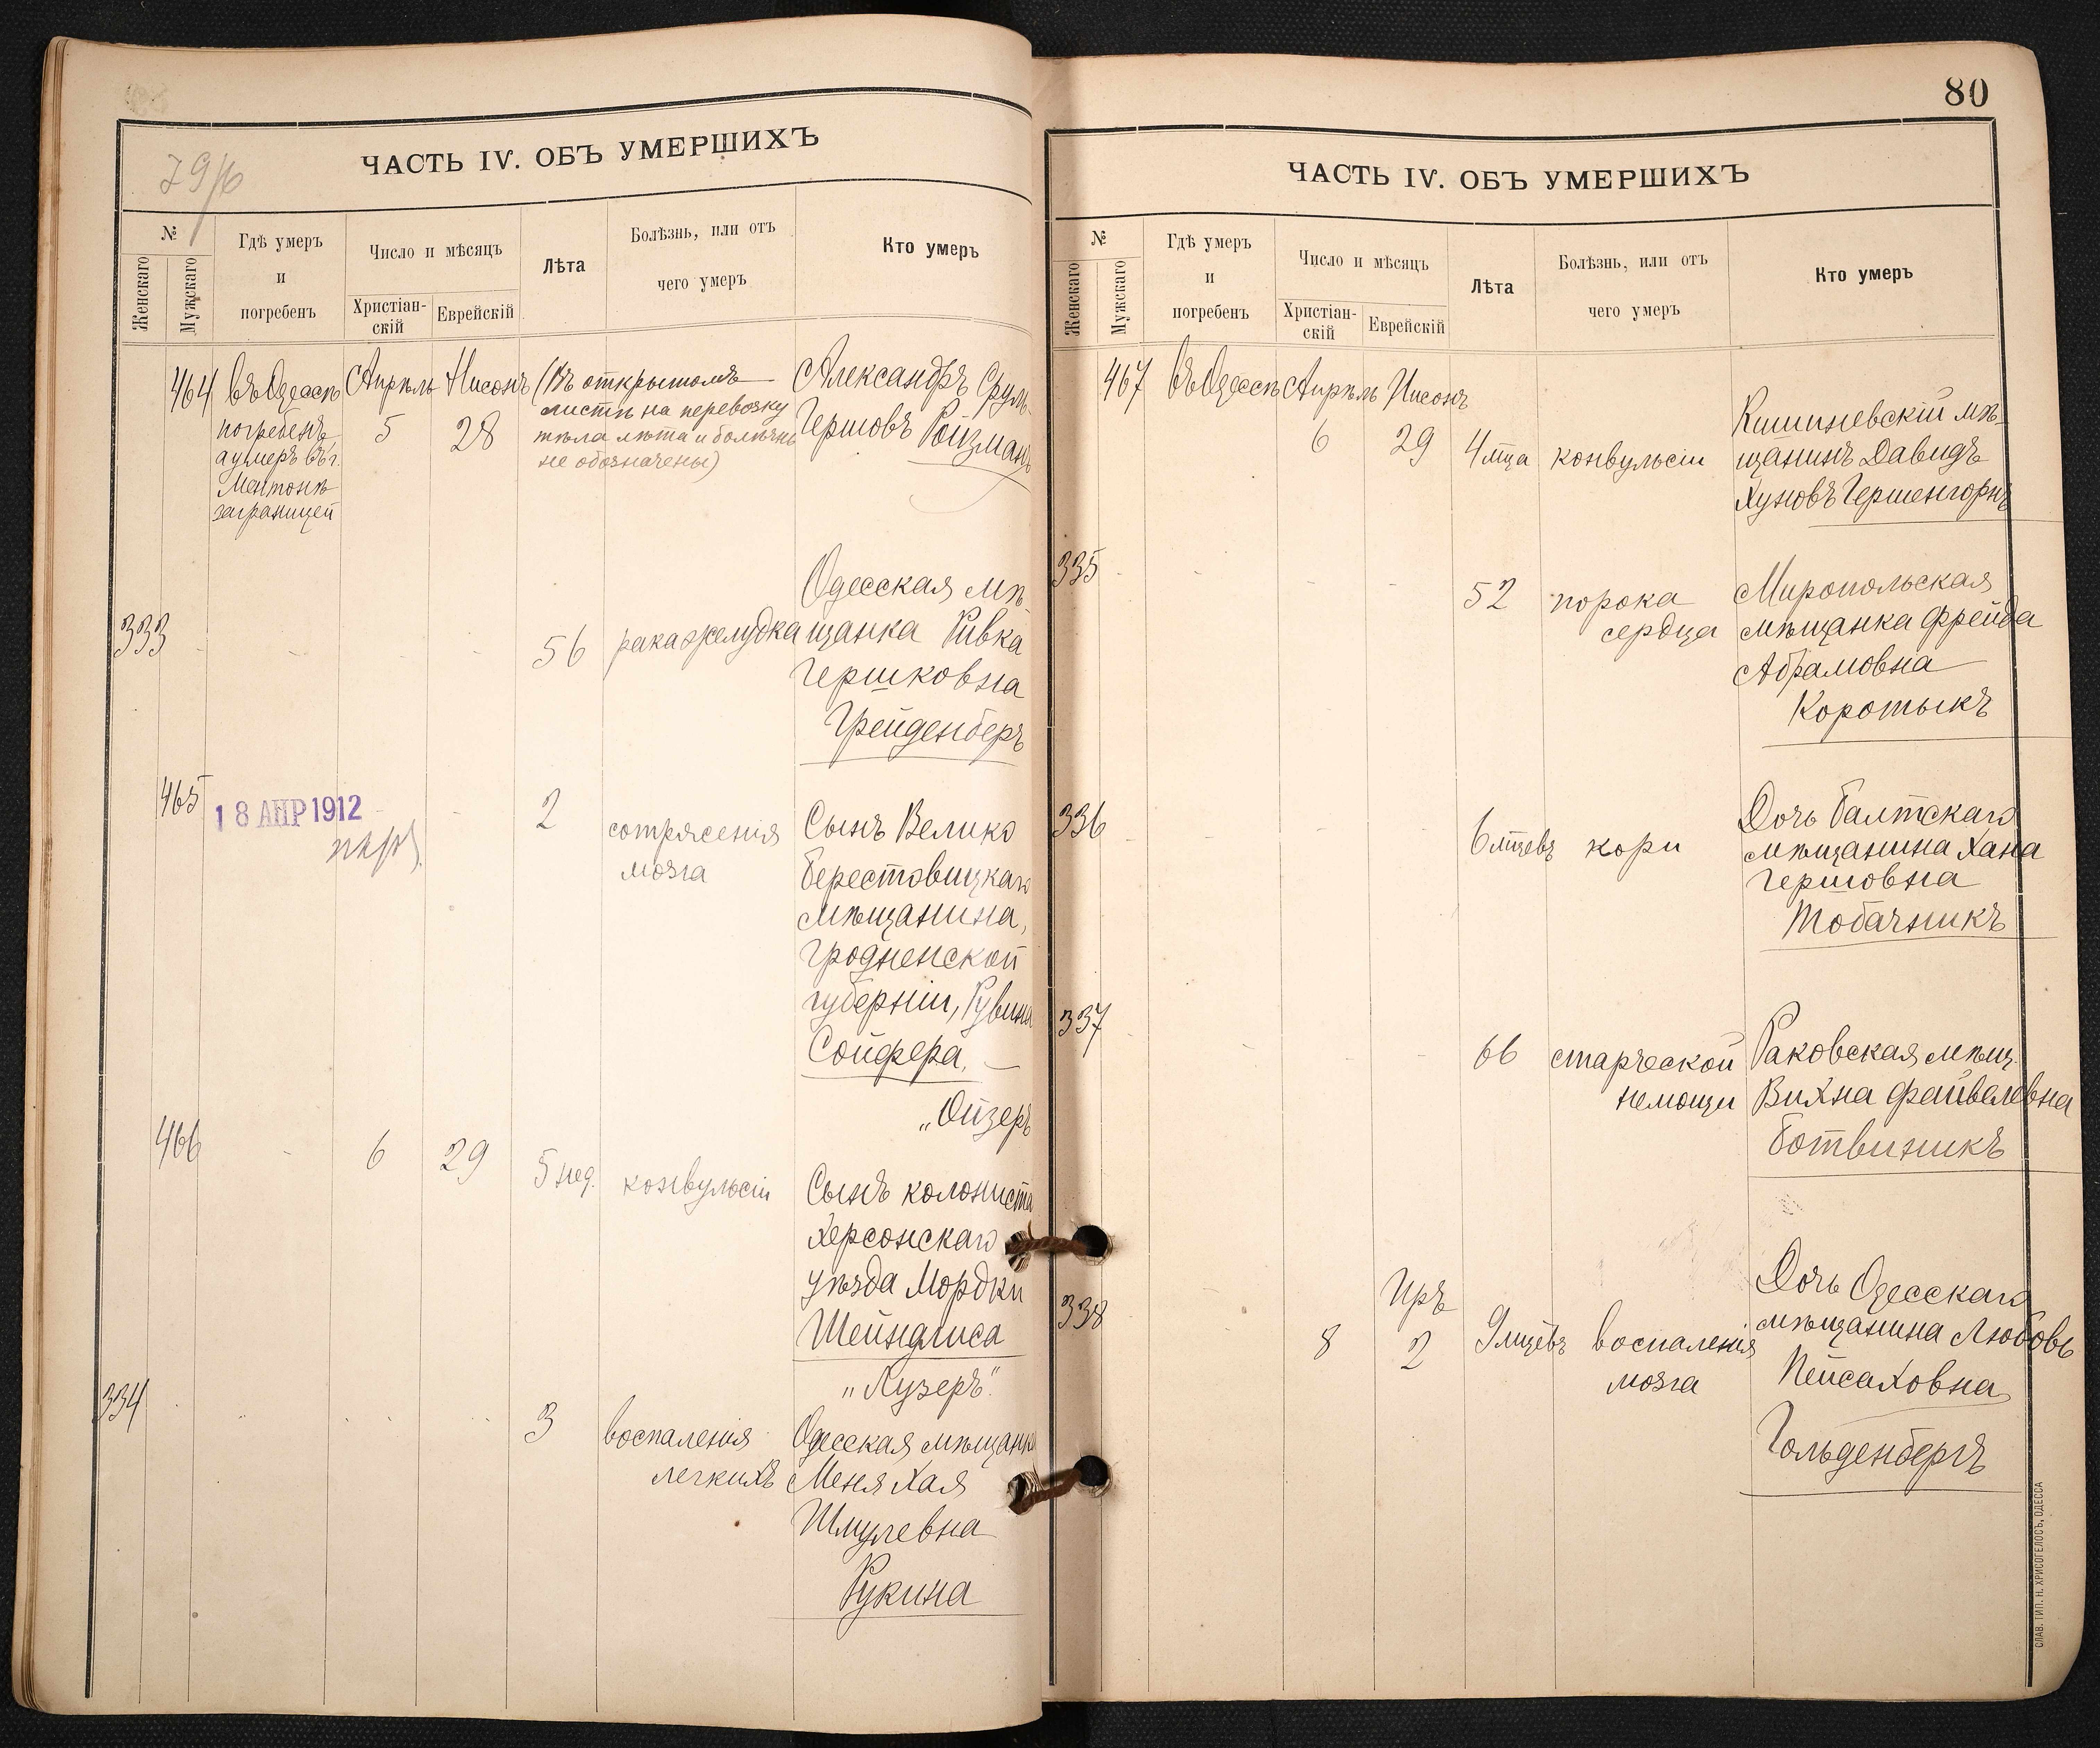 79/б
ЧАСТЬ IV. ОБЪ УМЕРШИХЪ
№
Женскаго
Мужскаго
Гдѣ умеръ
и
погребенъ
Число и мѣсяцъ
Христіан-
скій
Еврейскій
Лѣта
Болѣзнь, или отъ
чего умеръ
Кто умеръ
464
въ Одессѣ
погребенъ,
а умеръ въ г.
Ментонѣ
заграницей
Апрѣль
5
Нисонъ
28
(Въ открытомъ
листѣ на перевозку
тѣла лѣта и болѣзнь
не обозначены)
Александръ Сруль
Гершовъ Ройзманъ
333
56
рака желудка
Одесская мѣ-
щанка Ривка
Гершковна
Грейденберъ
465
18 АПР 1912
2
сотрясенія
мозга
Сынъ Велико
Берестовицкаго
мѣщанина,
Гродненской
губерніи, Рувина
Сойфера, —
„Ойзеръ
466
6
29
5 нед.
конвульсіи
Сынъ колониста
Херсонскаго
уѣзда Мордки
Шейндлиса
„Лузеръ"
334
3
воспаленія
легкихъ
Одесская мѣщанка
Меня Хая
Шмулевна
Рукина
80
ЧАСТЬ IV. ОБЪ УМЕРШИХЪ
№
Женскаго
Мужскаго
Гдѣ умеръ
и
погребенъ
Число и мѣсяцъ
Христіан-
скій
Еврейскій
Лѣта
Болѣзнь, или отъ
чего умеръ
Кто умеръ
467
въ Одессѣ
Апрѣль
6
Нисонъ
29
4 мца
конвульсіи
Кишиневскій мѣ-
щанинъ Давидъ
Хуновъ Гершенгорнъ
335
52
порока
сердца
Миропольская
мѣщанка Фрейда
Абрамовна
Коротыкъ
336
6 мцевъ
кори
Дочь Балтскаго
мѣщанина Хана
Гершовна
Тобачникъ
337
66
старческой
немощи
Раковская мѣщ.
Вихна Файвелевна
Ботвиникъ
338
8
Иръ
2
9 мцевъ
воспаленія
мозга
Дочь Одесскаго
мѣщанина Любовь
Пейсаховна
Гольденбергъ
СЛАВ. ТИП. Н. ХРИСОГЕЛОСЪ, ОДЕССА